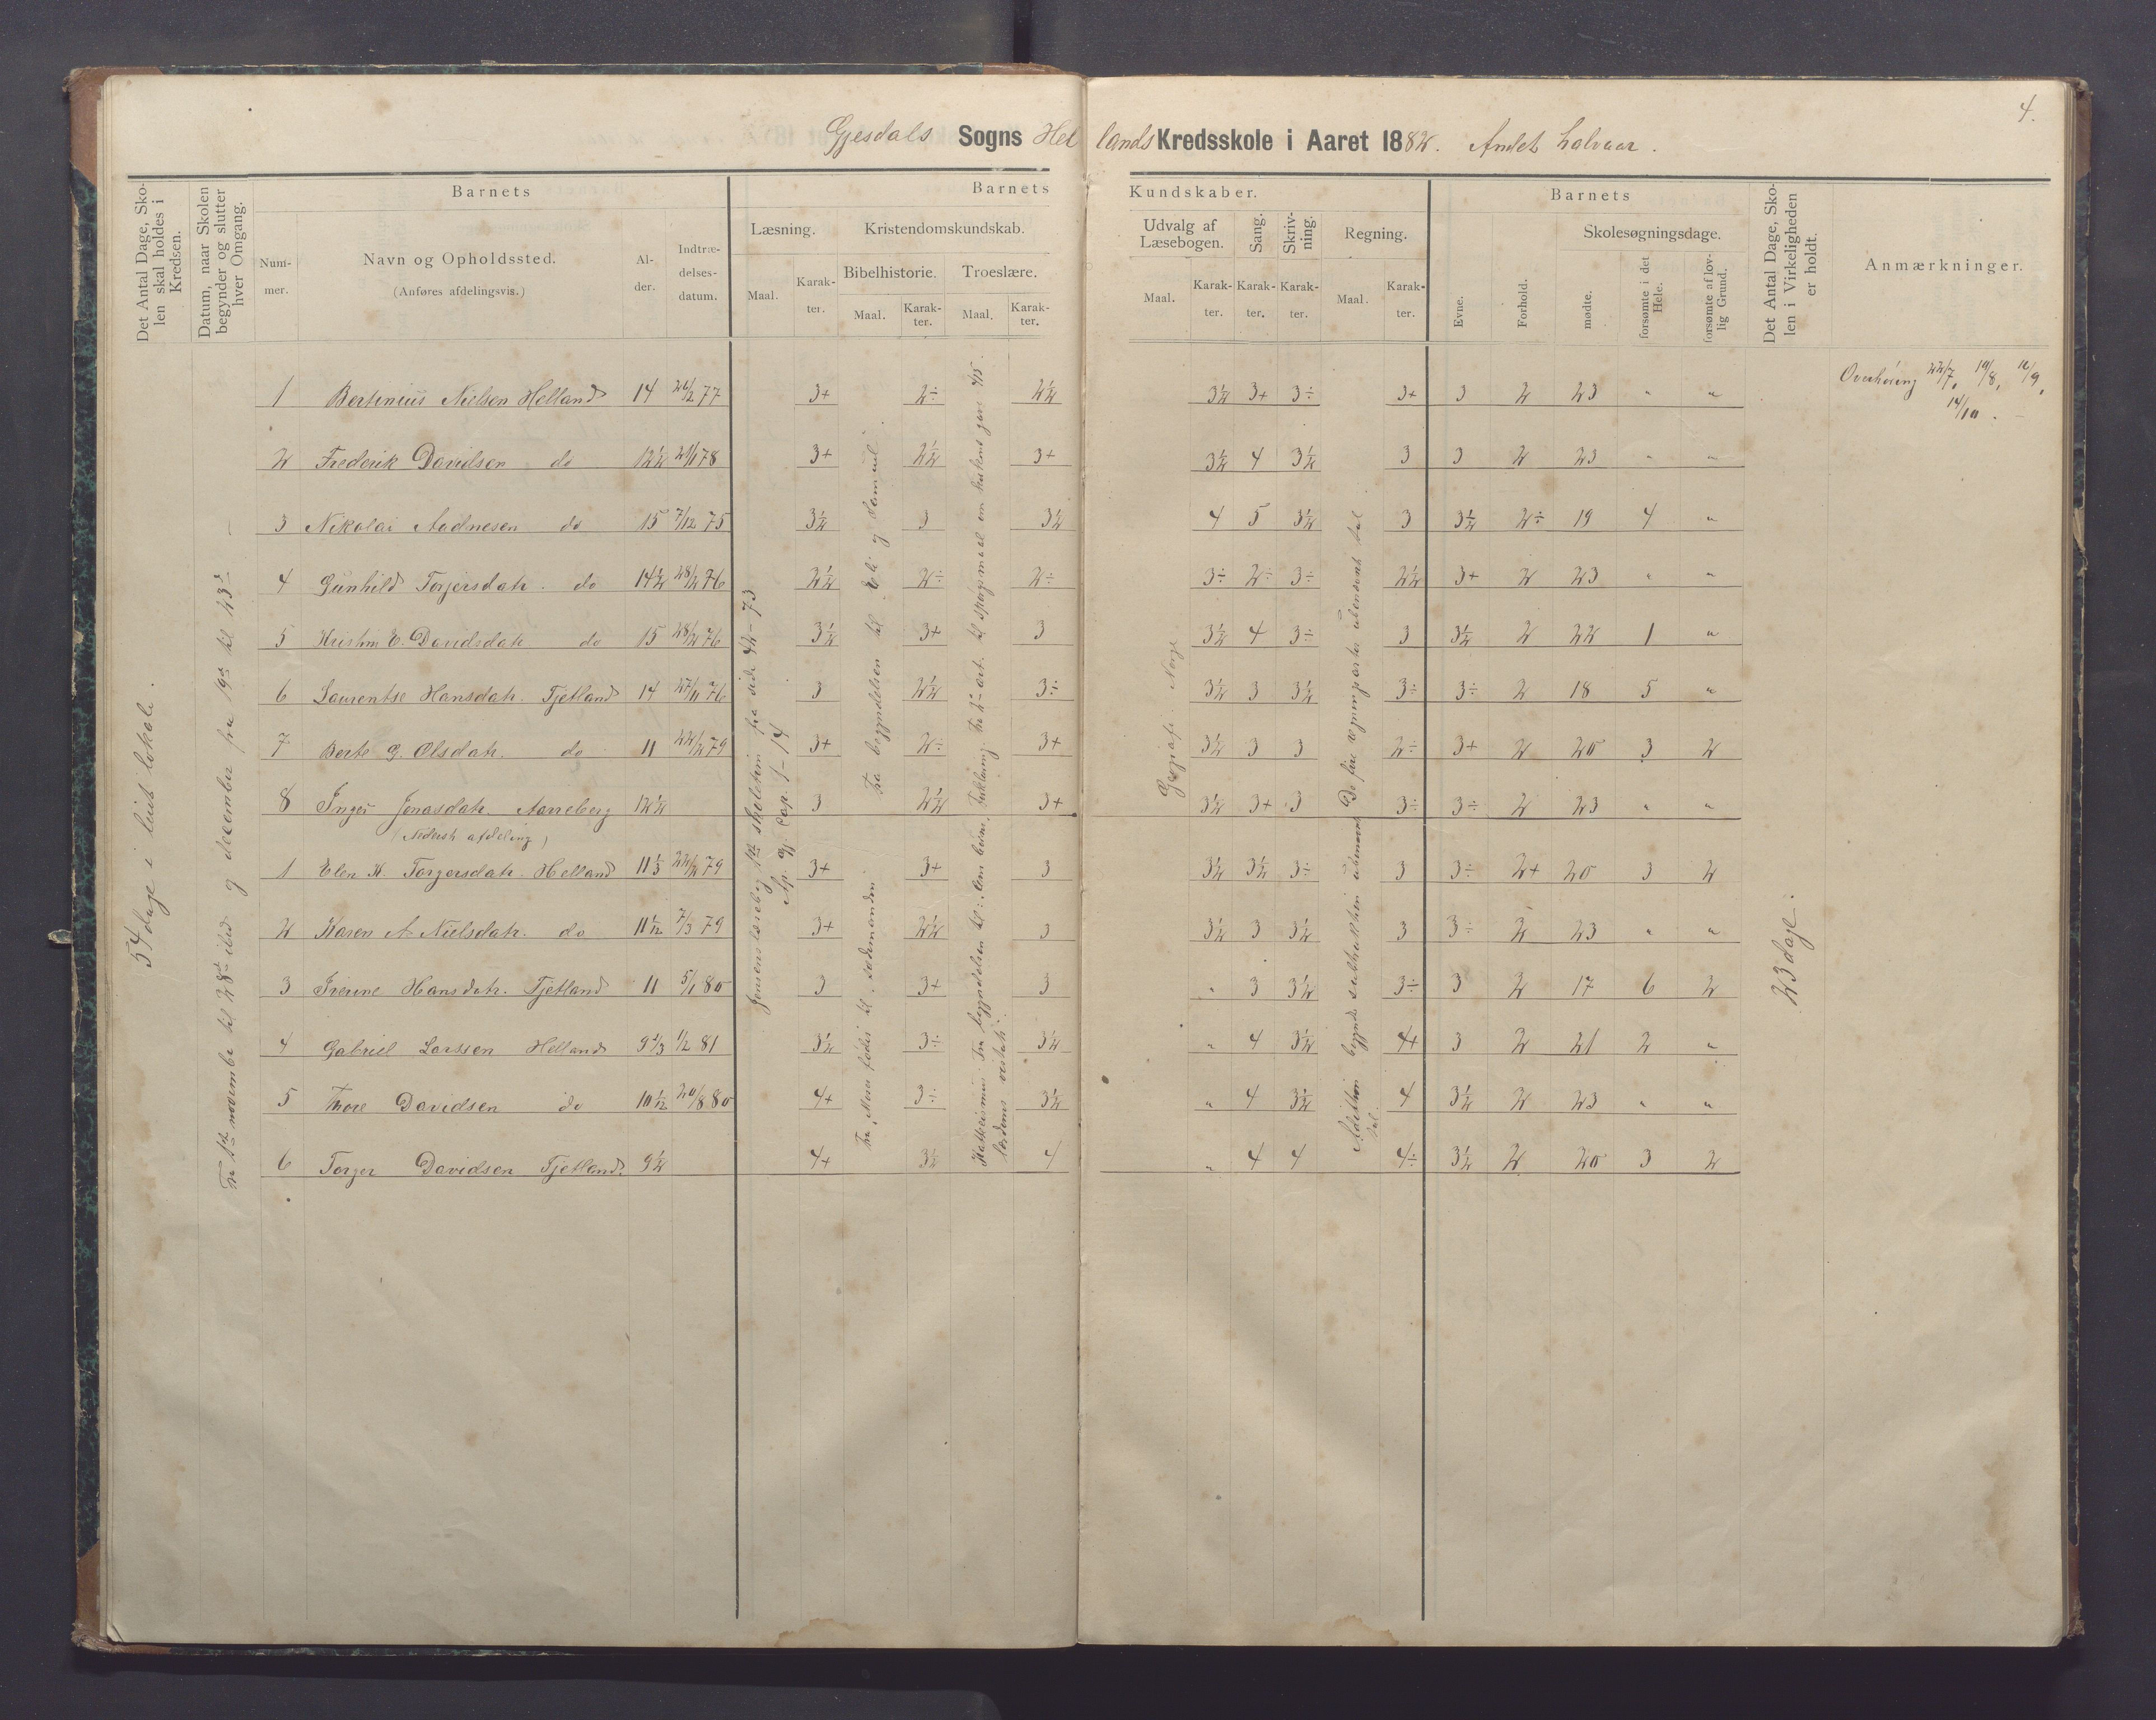 4.
Gjesdals Sogns Hel lands Kredsskole i Aaret 1882. Andet halvaar.
Det Antal Dage, Skolen skal holdes i Kredsen.
Datum, naar Skolen begynder og slutter hver Omgang.
Barnets
Nummer.
Navn og Opholdssted.
(Anføres afdelingsvis.)
Alder.
Indtrædelsesdatum.
Barnets Kundskaber.
Læsning.
Maal. Karakter.
Kristendomskundskab.
Bibelhistorie. Troeslære.
Maal. Karakter. Maal. Karakter.
Udvalg af Læsebogen.
Maal. Karakter.
Sang. Karakter.
Skrivning. Karakter.
Regning.
Maal. Karakter.
Barnets
Evne. Forhold.
Skolesøgningsdage.
mødte. forsømte i det Hele. forsømte af lovlig Grund.
Det Antal Dage, Skolen i Virkeligheden er holdt.
Anmærkninger.
54 dage i leiet lokale.
Fra 1ste november til 28de ibid og december fra 19de til 23de —
1 Bertinius Nielsen Helland 14 26/2 77 3+ 2÷ 2½ 3½ 3+ 3÷ 3+ 3 2 23 " "
Overhøring 22/7, 19/8, 16/9,
14/10. —
2 Frederik Davidsen do 12½ 21/1 78 3+ 2½ 3+ 3½ 4 3½ 3 3 2 23 " "
3 Nikolai Aadnesen do 15 7/12 75 3½ 3 3½ 4 5 3½ 3 3½ 2÷ 19 4 "
4 Gunhild Torjersdatr. do 14½ 28/2 76 2½ 2÷ 2÷ 3÷ 2÷ 3÷ 2½ 3+ 2 23 " "
5 E. Davidsdatr do 15 28/2 76 3½ 3+ 3 3½ 4 3÷ 3 3½ 2 22 1 "
6 Laurentse Hansdatr. Tjetland 14 27/11 76 3 2½ 3÷ 3½ 3 3½ 3÷ 3÷ 2 18 5 "
7 Berte G. Olsdatr. do 11 22/2 79 3+ 2÷ 3+ 3½ 3 3 2÷ 3+ 2 20 3 2
8 Inger Jonasdatr. 12½ 3 2½ 3+ 3½ 3+ 3 3÷ 3÷ 2 23 " "
(Nederste afdeling)
1 Elen K. Torgersdatr. Helland 11⅓ 22/2 79 3+ 3+ 3 3½ 3½ 3÷ 3 3÷ 2+ 20 3 2
2 Karen A Nielsdatr. do 11 1/12 7/3 79 3+ 2½ 3 3½ 3 3½ 3 3÷ 2 23 " "
3 Hansdatr. Tjetland 11 5/1 80 3 3+ 3 " 3 3½ 3÷ 3 2 17 6 2
4 Gabriel Larssen Helland 9⅓ 1/2 81 3½ 3÷ 3½ " 4 3½ 4+ 3 2 21 2 "
5 Thore Davidsen do 10 1/12 20/8 80 4+ 3÷ 3½ " 4 3½ 4 3½ 2 23 " "
6 Torger Davidsen Tjetland. 9½ 4+ 3½ 4 " 4 4 4÷ 3½ 2 20 3 2
Jensens læsebog 1ste skoletrin fra side 42–73
Ap. gj. Cap. 1–14
Fra begyndelsen til: Eli og Samuel.
Fra Mose fødes til:
Geografi: Norge.
De fire regningsarter ubenævnt tal
Addition begynd subtraktion ubenævnt tal.
23 dage.